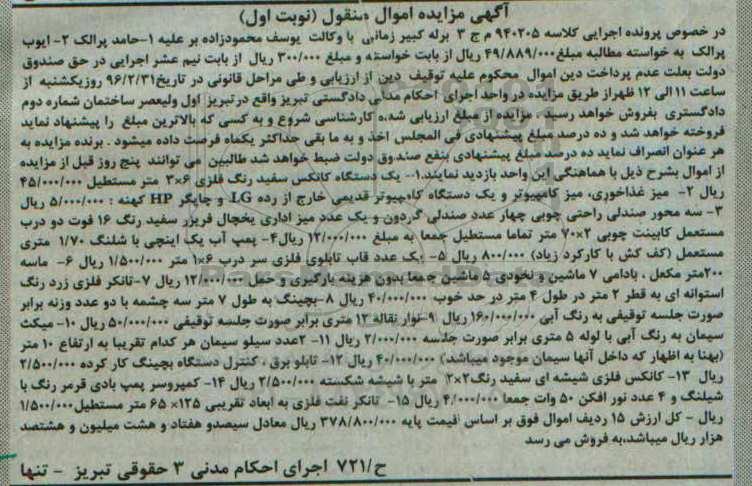 آگهی مزایده اموال منقول (نوبت اول)
در خصوص پرونده اجرایی کلاسه ۹۴۰۲۰۵ م ج ۳ برله کبیر زمانی با وکالت یوسف محمودزاده بر علیه ۱-حامد پرالک ۲- ایوب
پرالک به خواسته مطالبه مبلغ۴۹/۸۸۹/۰۰۰ ریال از بابت خواسته و مبلغ ۳۰۰/۰۰۰ ریال از بابت نیم عشر اجرایی در حق صندوق
دولت بعلت عدم پرداخت دین اموال محکوم علیه توقیف دین از ارزیابی و طی مراحل قانونی در تاریخ۹۶/۲/۳۱ روزیکشنبه از
ساعت ۱۱ الی ۱۲ ظهراز طریق مزایده در واحد اجرای احکام مدنی دادگستی تبریز واقع درتبریز اول ولیعصر ساختمان شماره دوم
دادگستری بفروش خواهد رسید. مزایده از مبلغ ارزیابی شده کارشناسی شروع و به کسی که بالاترین مبلغ را پیشنهاد نماید
فروخته خواهد شد و ده درصد مبلغ پیشنهادی فی المجلس اخذ و به ما بقی حداکثر یکماه فرصت داده میشود . برنده مزایده به
هر عنوان انصراف نماید ده درصد مبلغ پیشنهادی بنفع صندوق دولت ضبط خواهد شد طالبین می توانند پنج روز قبل از مزایده
از اموال بشرح ذیل با هماهنگی این واحد بازدید نمایند.۱- یک دستگاه کانکس سفید رنگ فلزی ۶×۳ متر مستطیل ۴۵/۰۰۰/۰۰۰
ریال ۲- میز غذاخوری، میز کامپیوتر و یک دستگاه کامپیوتر قدیمی خارج از رده LG و چاپگر HP کهنه : ۵/۰۰۰/۰۰۰ ریال
۳- سه محور صندلی راحتی چوبی چهار عدد صندلی گردون و یک عدد میز اداری یخچال فریزر سفید رنگ ۱۶ فوت دو درب
مستعمل کابینت چوبی ۲×۷۰ متر تماما مستطیل جمعا به مبلغ ۱۲/۰۰۰/۰۰۰ ریال۴- پمپ آب یک اینچی با شلنگ ۱/۷۰ متری
مستعمل (کف کش با کارکرد زیاد) ۸۰۰/۰۰۰ ریال ۵- یک عدد قاب تابلوی فلزی سر درب ۶×۱ متر ۱/۵۰۰/۰۰۰ ریال ۶- ماسه
۲۰۰متر مکعل ، بادامی ۷ ماشین و نخودی ۵ ماشین جمعا بدون هزینه بارگیری و حمل ۱۲/۰۰۰/۰۰۰ ریال ۷-تانکر فلزی زرد رنگ
استوانه ای به قطر ۲ متر در طول ۴ متر در حد خوب ۴۰/۰۰۰/۰۰۰ ریال ۸-بچینگ به طول ۷ متر سه چشمه با دو عدد وزنه برابر
صورت جلسه توقیفی به رنگ آبی ۱۶۰/۰۰۰/۰۰۰ ریال ۹-نوار نقاله ۱۲ متری برابر صورت جلسه توقیفی ۵۰/۰۰۰/۰۰۰ ریال ۱۰- میکث
سیمان به رنگ آبی با لوله ۵ متری برابر صورت جلسه ۲/۰۰۰/۰۰۰ ریال ۱۱- ۲عدد سیلو سیمان هر کدام تقریبا به ارتفاع ۱۰ متر
(بهنا به اظهار که داخل آنها سیمان موجود میباشد) ۴۰/۰۰۰/۰۰۰ ریال ۱۲- تابلو برق ، کنترل دستگاه بچینگ کار کرده ۲/۵۰۰/۰۰۰
ریال ۱۳- کانکس فلزی شیشه ای سفید رنگ۲×۲ متر با شیشه شکسته ۲/۵۰۰/۰۰۰ ریال ۱۴- کمپروسر پمپ بادی قرمر رنگ با
شیلنگ و ۴ عدد نور افکن ۵۰ وات جمعا ۴/۰۰۰/۰۰۰ ریال ۱۵- تانکر نفت فلزی به ابعاد تقریبی ۱۲۵× ۶۵ متر مستطیل۱/۵۰۰/۰۰۰
ریال - کل ارزش ۱۵ ردیف اموال فوق بر اساس قیمت پایه ۳۷۸/۸۰۰/۰۰۰ ریال معادل سیصدو هفتاد و هشت میلیون و هشتصد
هزار ریال میباشد،به فروش می رسد
ح/۷۲۱ اجرای احکام مدنی ۳ حقوقی تبریز - تنها